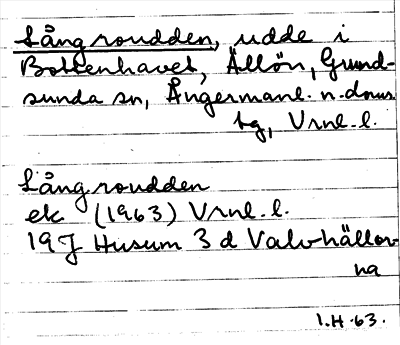 Långroudden, udde i
Bottenhavet, Ällön, Grund-
sunda sn, Ångermanl. n. doms
tg, Vrnl. l.
Långroudden
ek (1963) Vrnl. l.
19J Husum 3 d Valvhällor
na
I.H-63.